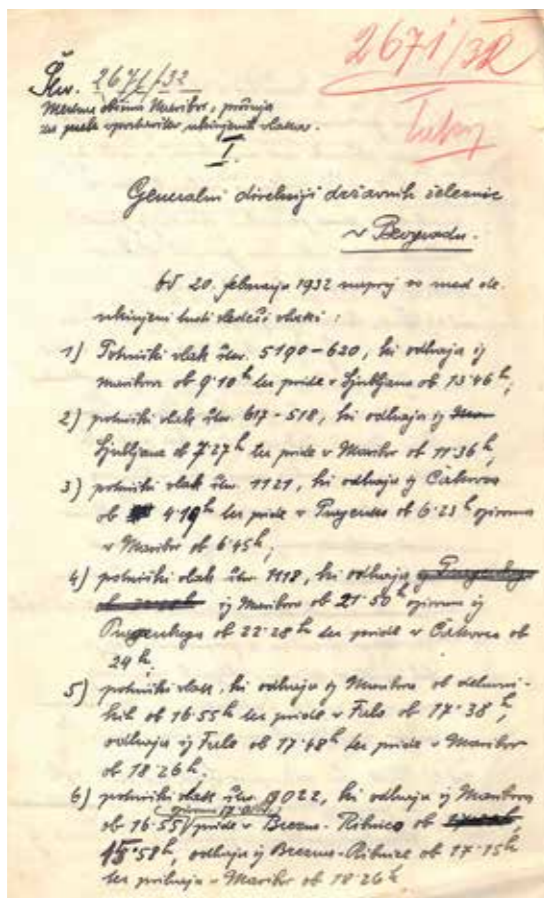 2671/32
Štev. 2671/32
Mestna občina Maribor, prošnja
za zopet vpostavitev ukinjenih vlakov.
I.
Generalni direkciji državnih železnic
v Beogradu.
Od 20. februarja 1932 naprej so med dr.
ukinjeni tudi sledeči vlaki:
1) Potniški vlak štev. 5190-620, ki odhaja iz
Maribora ob 9·10h ter pride v Ljubljano ob 13·46h;
2) potniški vlak štev. 617-518, ki odhaja iz
Ljubljane ob 7·27h ter pride v Maribor ob 11·36h;
3) potniški vlak štev. 1121, ki odhaja iz Čakovca
ob 4·19h ter pride v Pragersko ob 6·23h oziroma
v Maribor ob 6·45h;
4) potniški vlak štev. 1118, ki odhaja
iz Maribora ob 21·50h oziroma iz
Pragerskega ob 22·28h ter pride v Čakovec ob
24h;
5) potniški vlak, ki odhaja iz Maribora ob delavni-
kih ob 16·55h ter pride v Falo ob 17·38h,
odhaja iz Fale ob 17·48h ter pride v Maribor
ob 18·26h.
6) potniški vlak štev. 9022, ki odhaja iz Maribora
oziroma
ob 16·55 pride v Brezno-Ribnico ob
15·58h, odhaja iz Brezno-Ribnice ob 17·15h
ter prihaja v Maribor ob 18·26h.